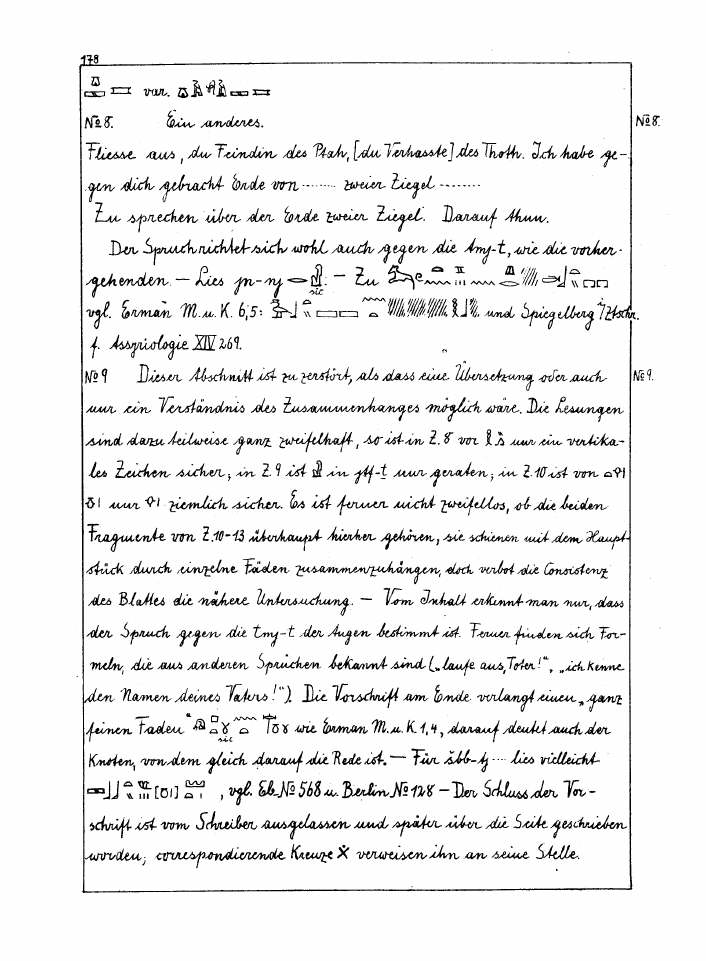 178
var.
№ 8. Ein anderes. № 8.
Fliesse aus, du Feindin des Ptah, [du Verhasste] des Thoth. Ich habe ge-
gen dich gebracht Erde von ········ zweier Ziegel ········
Zu sprechen über der Erde zweier Ziegel. Darauf thun.
Der Spruch richtet sich wohl auch gegen die tmy-t, wie die vorher-
gehenden. — Lies jn-nj sic — Zu
vgl. Erman M.u.K. 6,5: und Spiegelberg Ztschr.
f. Assyriologie XIV 269.
№ 9 Dieser Abschnitt ist zu zerstört, als dass eine Übersetzung oder auch № 9.
nur ein Verständnis des Zusammenhanges möglich wäre. Die Lesungen
sind dazu teilweise ganz zweifelhaft, so ist in Z. 8 vor nur ein vertika-
les Zeichen sicher; in Z. 9 ist in jtf-t nur geraten; in Z. 10 ist von
nur ziemlich sicher. Es ist ferner nicht zweifellos, ob die beiden
Fragmente von Z. 10-13 überhaupt hierher gehören, sie schienen mit dem Haupt-
stück durch einzelne Fäden zusammenzuhängen, doch verbot die Consistenz
des Blattes die nähere Untersuchung. — Vom Inhalt erkennt man nur, dass
der Spruch gegen die tmy-t der Augen bestimmt ist. Ferner finden sich For-
meln, die aus anderen Sprüchen bekannt sind („laufe aus, Toter!", „ich kenne
den Namen deines Vaters!"). Die Vorschrift am Ende verlangt einen „ganz
feinen Faden" sic wie Erman M.u.K 1,4, darauf deutet auch der
Knoten, von dem gleich darauf die Rede ist. — Für šbb-tj ···· lies vielleicht
, vgl. Eb. № 568 u. Berlin № 128 — Der Schluss der Vor-
schrift ist vom Schreiber ausgelassen und später über die Seite geschrieben
worden; correspondierende Kreuze verweisen ihn an seine Stelle.